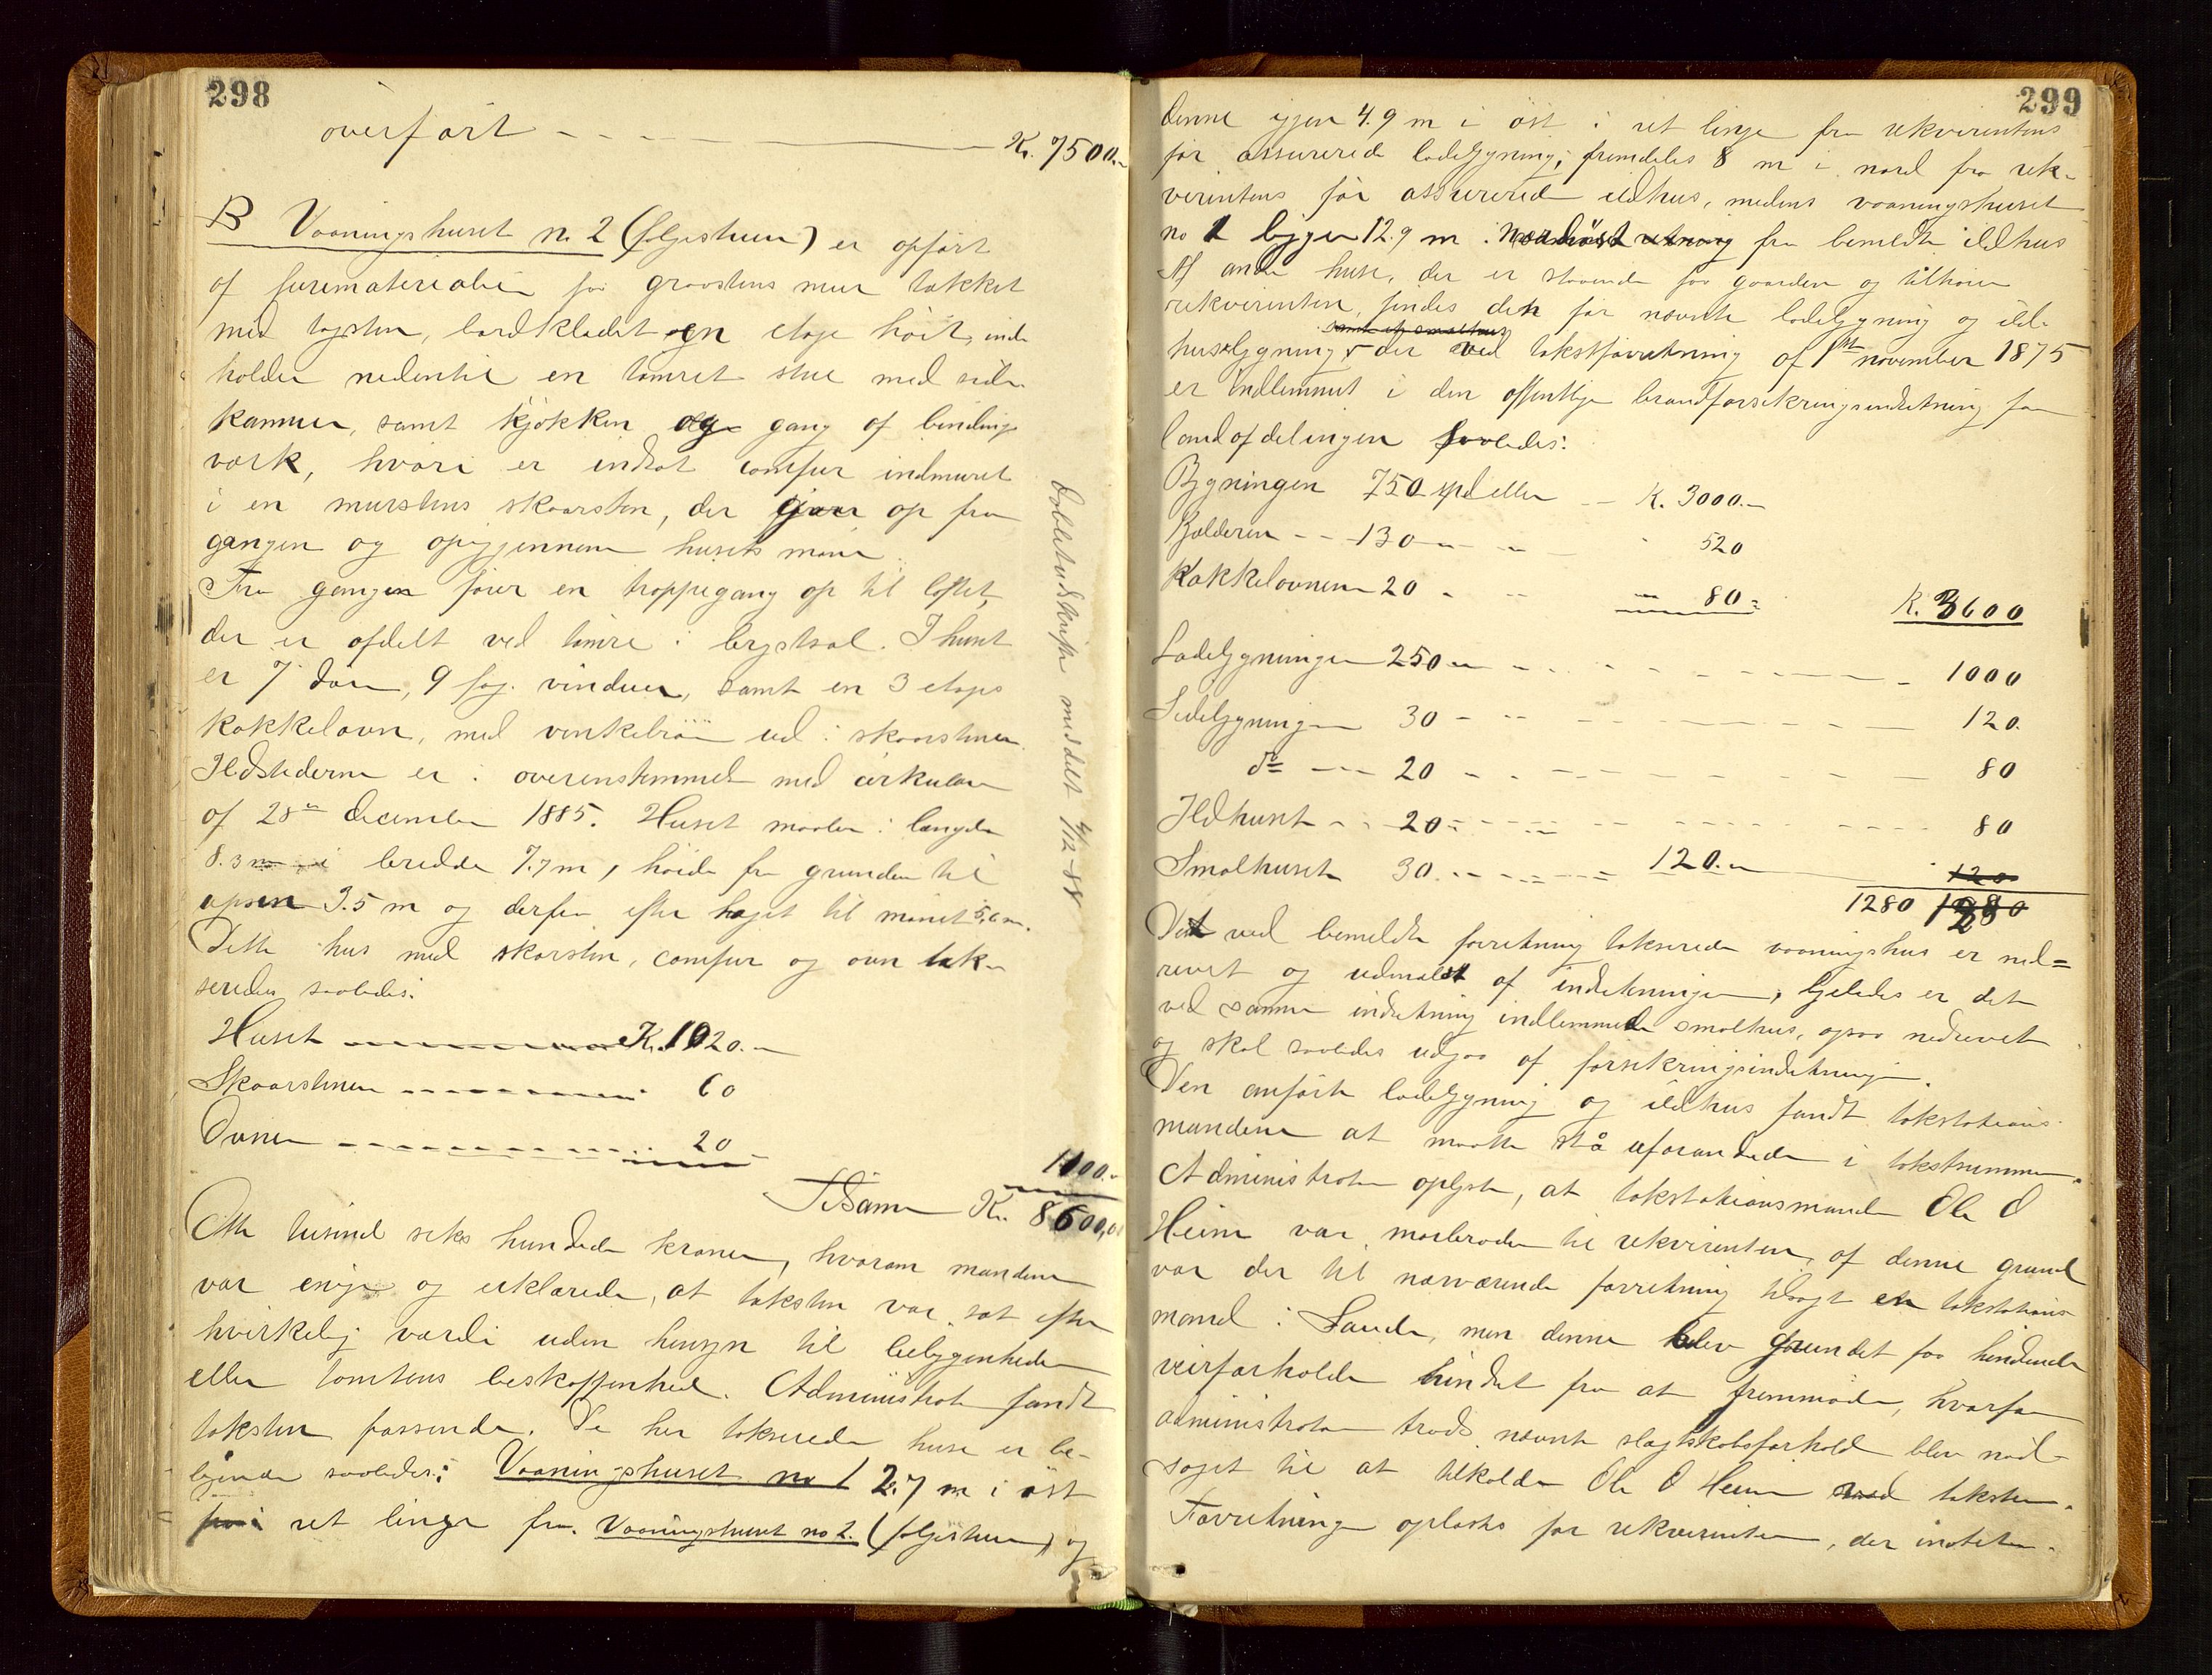 298
overført — K. 7500.-
B Vaaningshuset no 2 (føljeshuse) er opført
af furematerialier paa graastens mur takket
med tagsten, bordkladet en etage høit, inde
holder nedentil en tømret stue med side
kammer, samt kjøkken og gang af bindings
værk, hvori er indsat comfur indmuret
i en murstens skaarsten, der gaar op fra
gangen og opigjennem husets møne.
Fra gangen fører en trappegang op til loftet,
der er afdelt ved tømre i brystsal. I huset
er 7 døre, 9 fag vinduer, samt en 3 etages
kakkelovn, med vinkelrør ud i skaarstenen.
Ildstederne er i overenstemmelse med cirkulær
af 28de december 1885. Huset maaler i længde
8.3 m i bredde 7.7 m, høide fra grunden til
opsen 3.5 m og derfra efter taget til mønet 5,6 m.
Dette hus med skorsten, comfur og ovn tak-
seredes saaledes:
Huset K. 1020.-
Skaarstenen 60
Ovnen 20
1100.-
Tilsamen K. 8600,00
Otte tusind seks hundrede kroner, hvorom mændene
var enige og erklærede, at taksten var sat efter
hvirkelig værdi uden hensyn til beliggenheden
eller tomtens beskaffenhed. Administrator fandt
taksten passende. De her takserede huse er be-
liggende saaledes: Vaaningshuset no 1 2.7 m i øst
i ret linge fra Vaaningshuset no 2. (føljeshuse) og
Dobbeltudskrift meddelt 4/12-88
299
denne igjen 4.9 m i øst i ret linje fra rekvirentens
før assurerede ladebygning; fremdeles 8 m i nord fra rek-
virentens før assurerede ildhus, medens vaaningshuset
no 1 ligger 12.9 m i nordøst retning fra bemeldte ildhus
Af andre huse, der er staaende paa gaarden og tilhører
rekvirenten, findes den før nævnte ladebygning og ild-
samt et smalhus
husbygning, der ved takstforretning af 1ste november 1875
er indlemmet i den offentlige brandforsikringsindretning for
landafdelingen saaledes:
Bygningen 750 spd eller - K. 3000.-
Bolderen - - 130 - - 520
Kakkelovnen 20 - - 80 K. 3600
Ladebygningen 250 - - 1000
Sidebygningen 30 - - 120.
do - - 20 - - 80
Ildhuset - - 20 - - 80
Smalhuset 30 - - 120.- 120
1280 1280
Det ved bemeldte forretning takserede vaaningshus er ned=
revet og udmeldt af indretningen, ligeledes er det
ved samme indretning indlemmede smalhus, ogsaa nedrevet
og skal saaledes udgaa af forsikringsindretningen.
Den anførte ladebygning og ildhus fandt takstations-
mændene at maatte stå uforandrede i takstsummen.
Administrator oplyste, at takstationsmanden Ole O
Heim var morbroder til rekvirenten, af denne grund
var der til nærværende forretning tilsagt en takstations
mand i Sande, men denne blev grundet paa hindrende
veirforholde hindret fra at fremmøde, hvorfor
administrator trods nævnte slagtskabsforhold blev nød-
saget til at tilkalde Ole O Heim ved taksten.
Forretningen oplæstes for rekvirenten, der